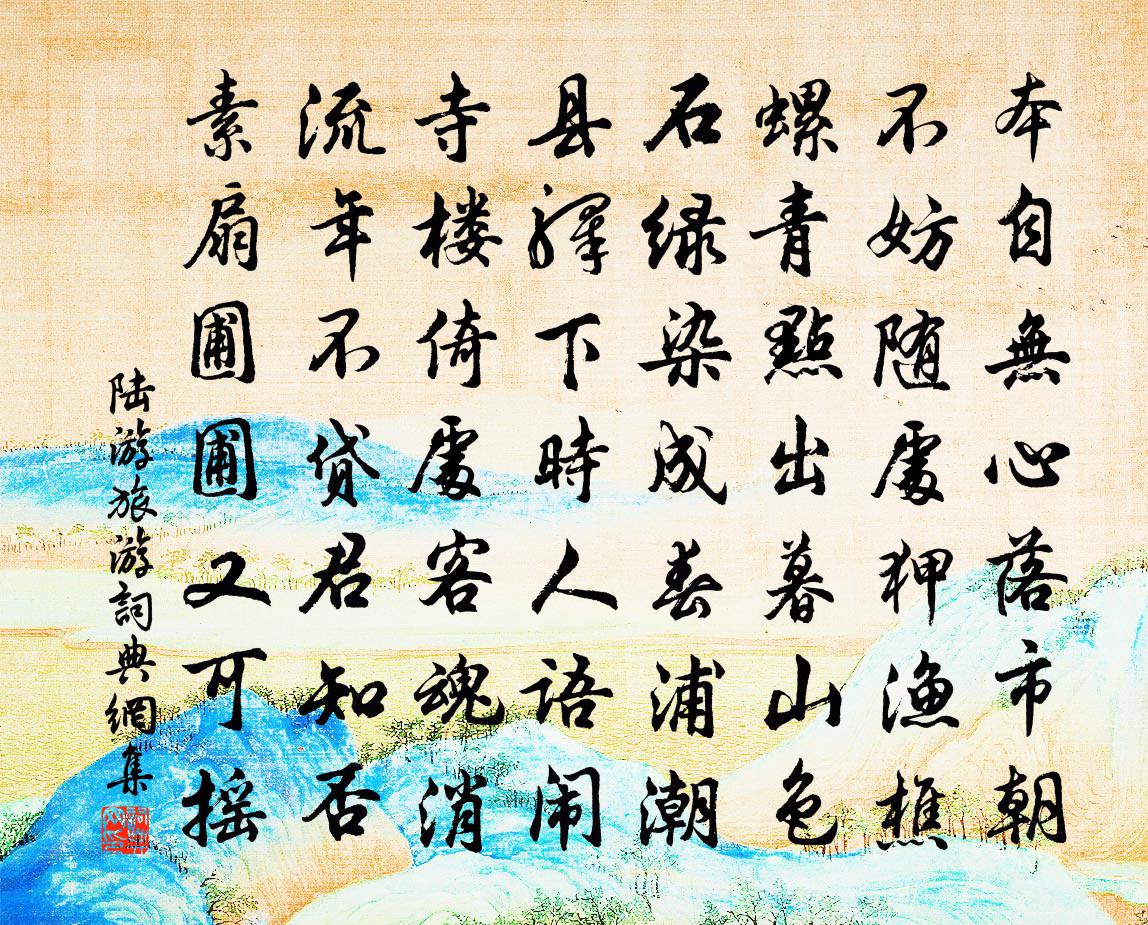 本自無心落市朝
不妨随處狎漁樵
螺青點出暮山色
石绿染成春浦潮
县驿下時人语闹
寺楼倚處客魂消
流年不贷君知否
素扇圃圃又可摇
陆游旅游詞典網集